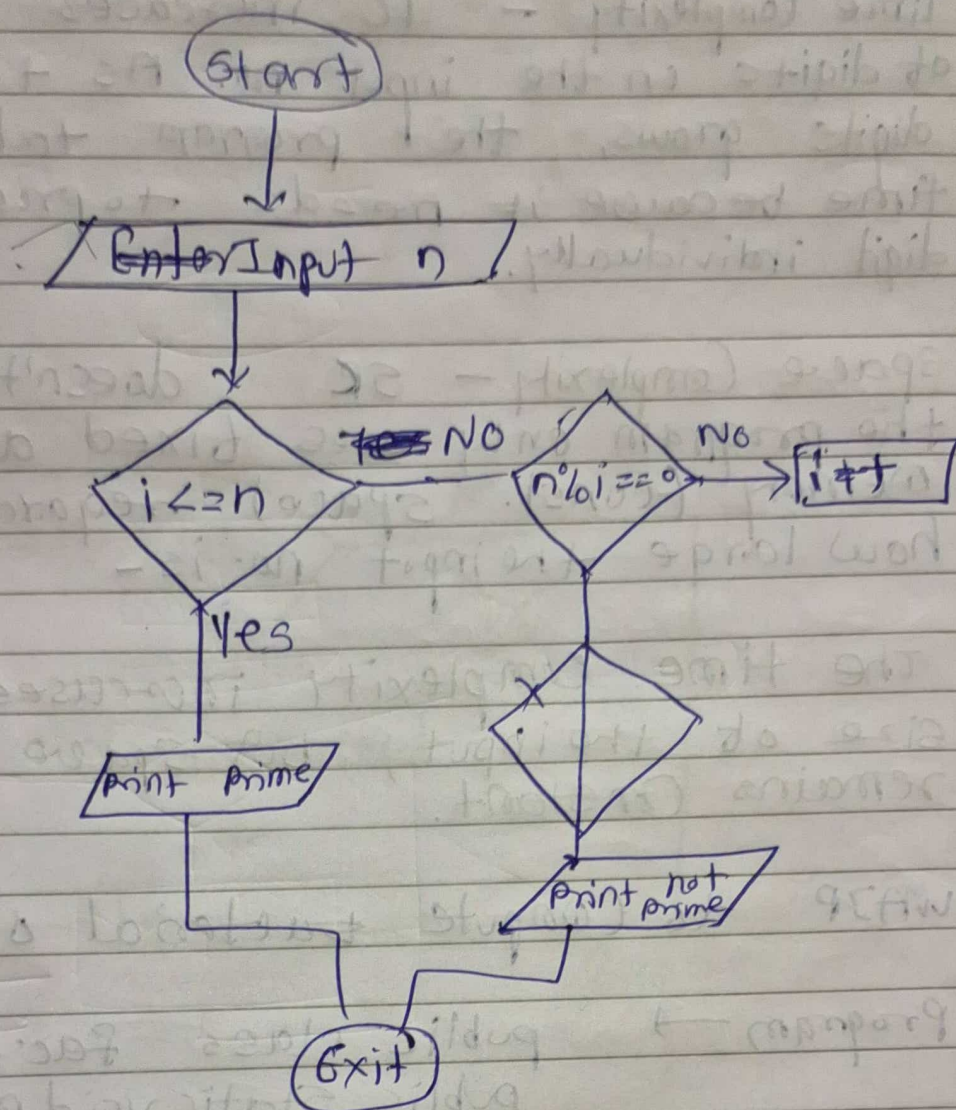 Start
Enter Input n
i<=n
Yes NO
n%i==0
NO
i++
Yes
print prime
print not
prime
Exit